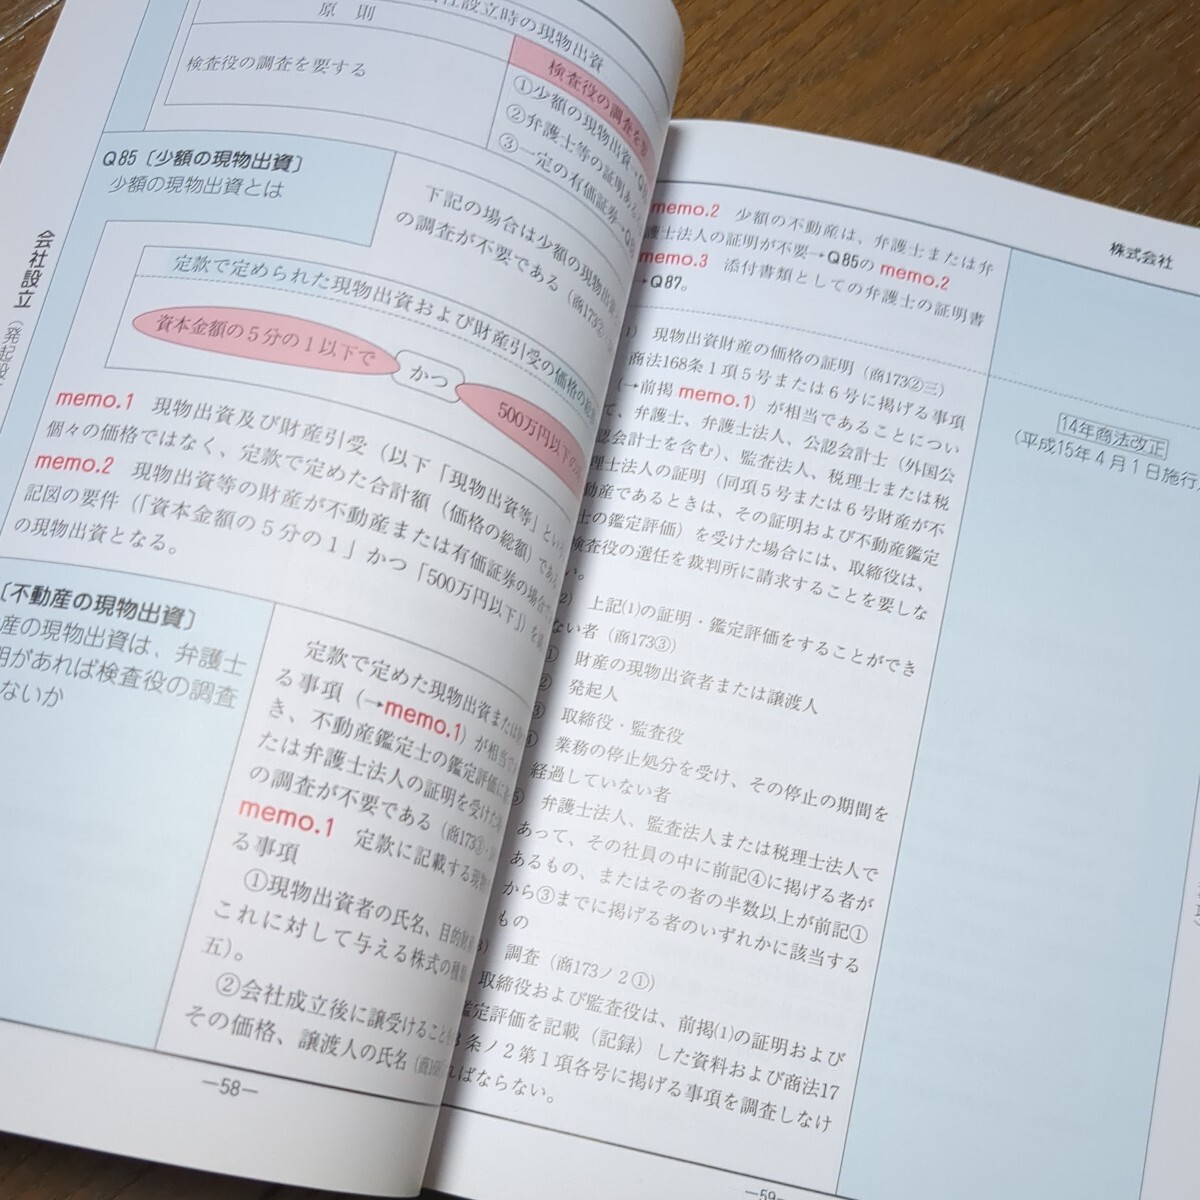 会社設立時の現物出資
原則
検査役の調査を要する
検査役の調査を
①少額の現物出資→Q
②弁護士等の証明ある
③一定の有価証券→Q
Q85〔少額の現物出資〕
少額の現物出資とは
下記の場合は少額の現物出資
の調査が不要である(商173②
定款で定められた現物出資および財産引受の価格の総
資本金額の5分の1以下で
かつ
500万円以下の
memo.1 現物出資及び財産引受(以下「現物出資等」とい
個々の価格ではなく、定款で定めた合計額(価格の総額)であ
memo.2 現物出資等の財産が不動産または有価証券の場合で
記図の要件(「資本金額の5分の1」かつ「500万円以下」)を
の現物出資となる。
〔不動産の現物出資〕
産の現物出資は、弁護士
明があれば検査役の調査
ないか
定款で定めた現物出資または
る事項(→memo.1)が相当で
き、不動産鑑定士の鑑定評価
たは弁護士法人の証明を受けた
の調査が不要である(商173②
memo.1 定款に記載する現物
る事項
①現物出資者の氏名、目的財
これに対して与える株式の種
五)。
②会社成立後に譲受けること
その価格、譲渡人の氏名(商
―58―
会社設立(発起設
株式会社
memo.2 少額の不動産は、弁護士または弁
護士法人の証明が不要→Q85の memo.2
memo.3 添付書類としての弁護士の証明書
→Q87。
1) 現物出資財産の価格の証明(商173②三)
商法168条1項5号または6号に掲げる事項
(→前掲memo.1)が相当であることについ
て、弁護士、弁護士法人、公認会計士(外国公
認会計士を含む)、監査法人、税理士または税
理士法人の証明(同項5号または6号財産が不
動産であるときは、その証明および不動産鑑定
士の鑑定評価)を受けた場合には、取締役は、
検査役の選任を裁判所に請求することを要しな
い。
2) 上記(1)の証明・鑑定評価をすることができ
ない者(商173③)
① 財産の現物出資者または譲渡人
② 発起人
③ 取締役・監査役
④ 業務の停止処分を受け、その停止の期間を
経過していない者
⑤ 弁護士法人、監査法人または税理士法人で
あって、その社員の中に前記④に掲げる者が
あるもの、またはその者の半数以上が前記①
から③までに掲げる者のいずれかに該当する
もの
3) 調査(商173ノ2①)
取締役および監査役は、前掲(1)の証明および
鑑定評価を記載(記録)した資料および商法17
3条ノ2第1項各号に掲げる事項を調査しなけ
ればならない。
14年商法改正
(平成15年4月1日施行
―59―